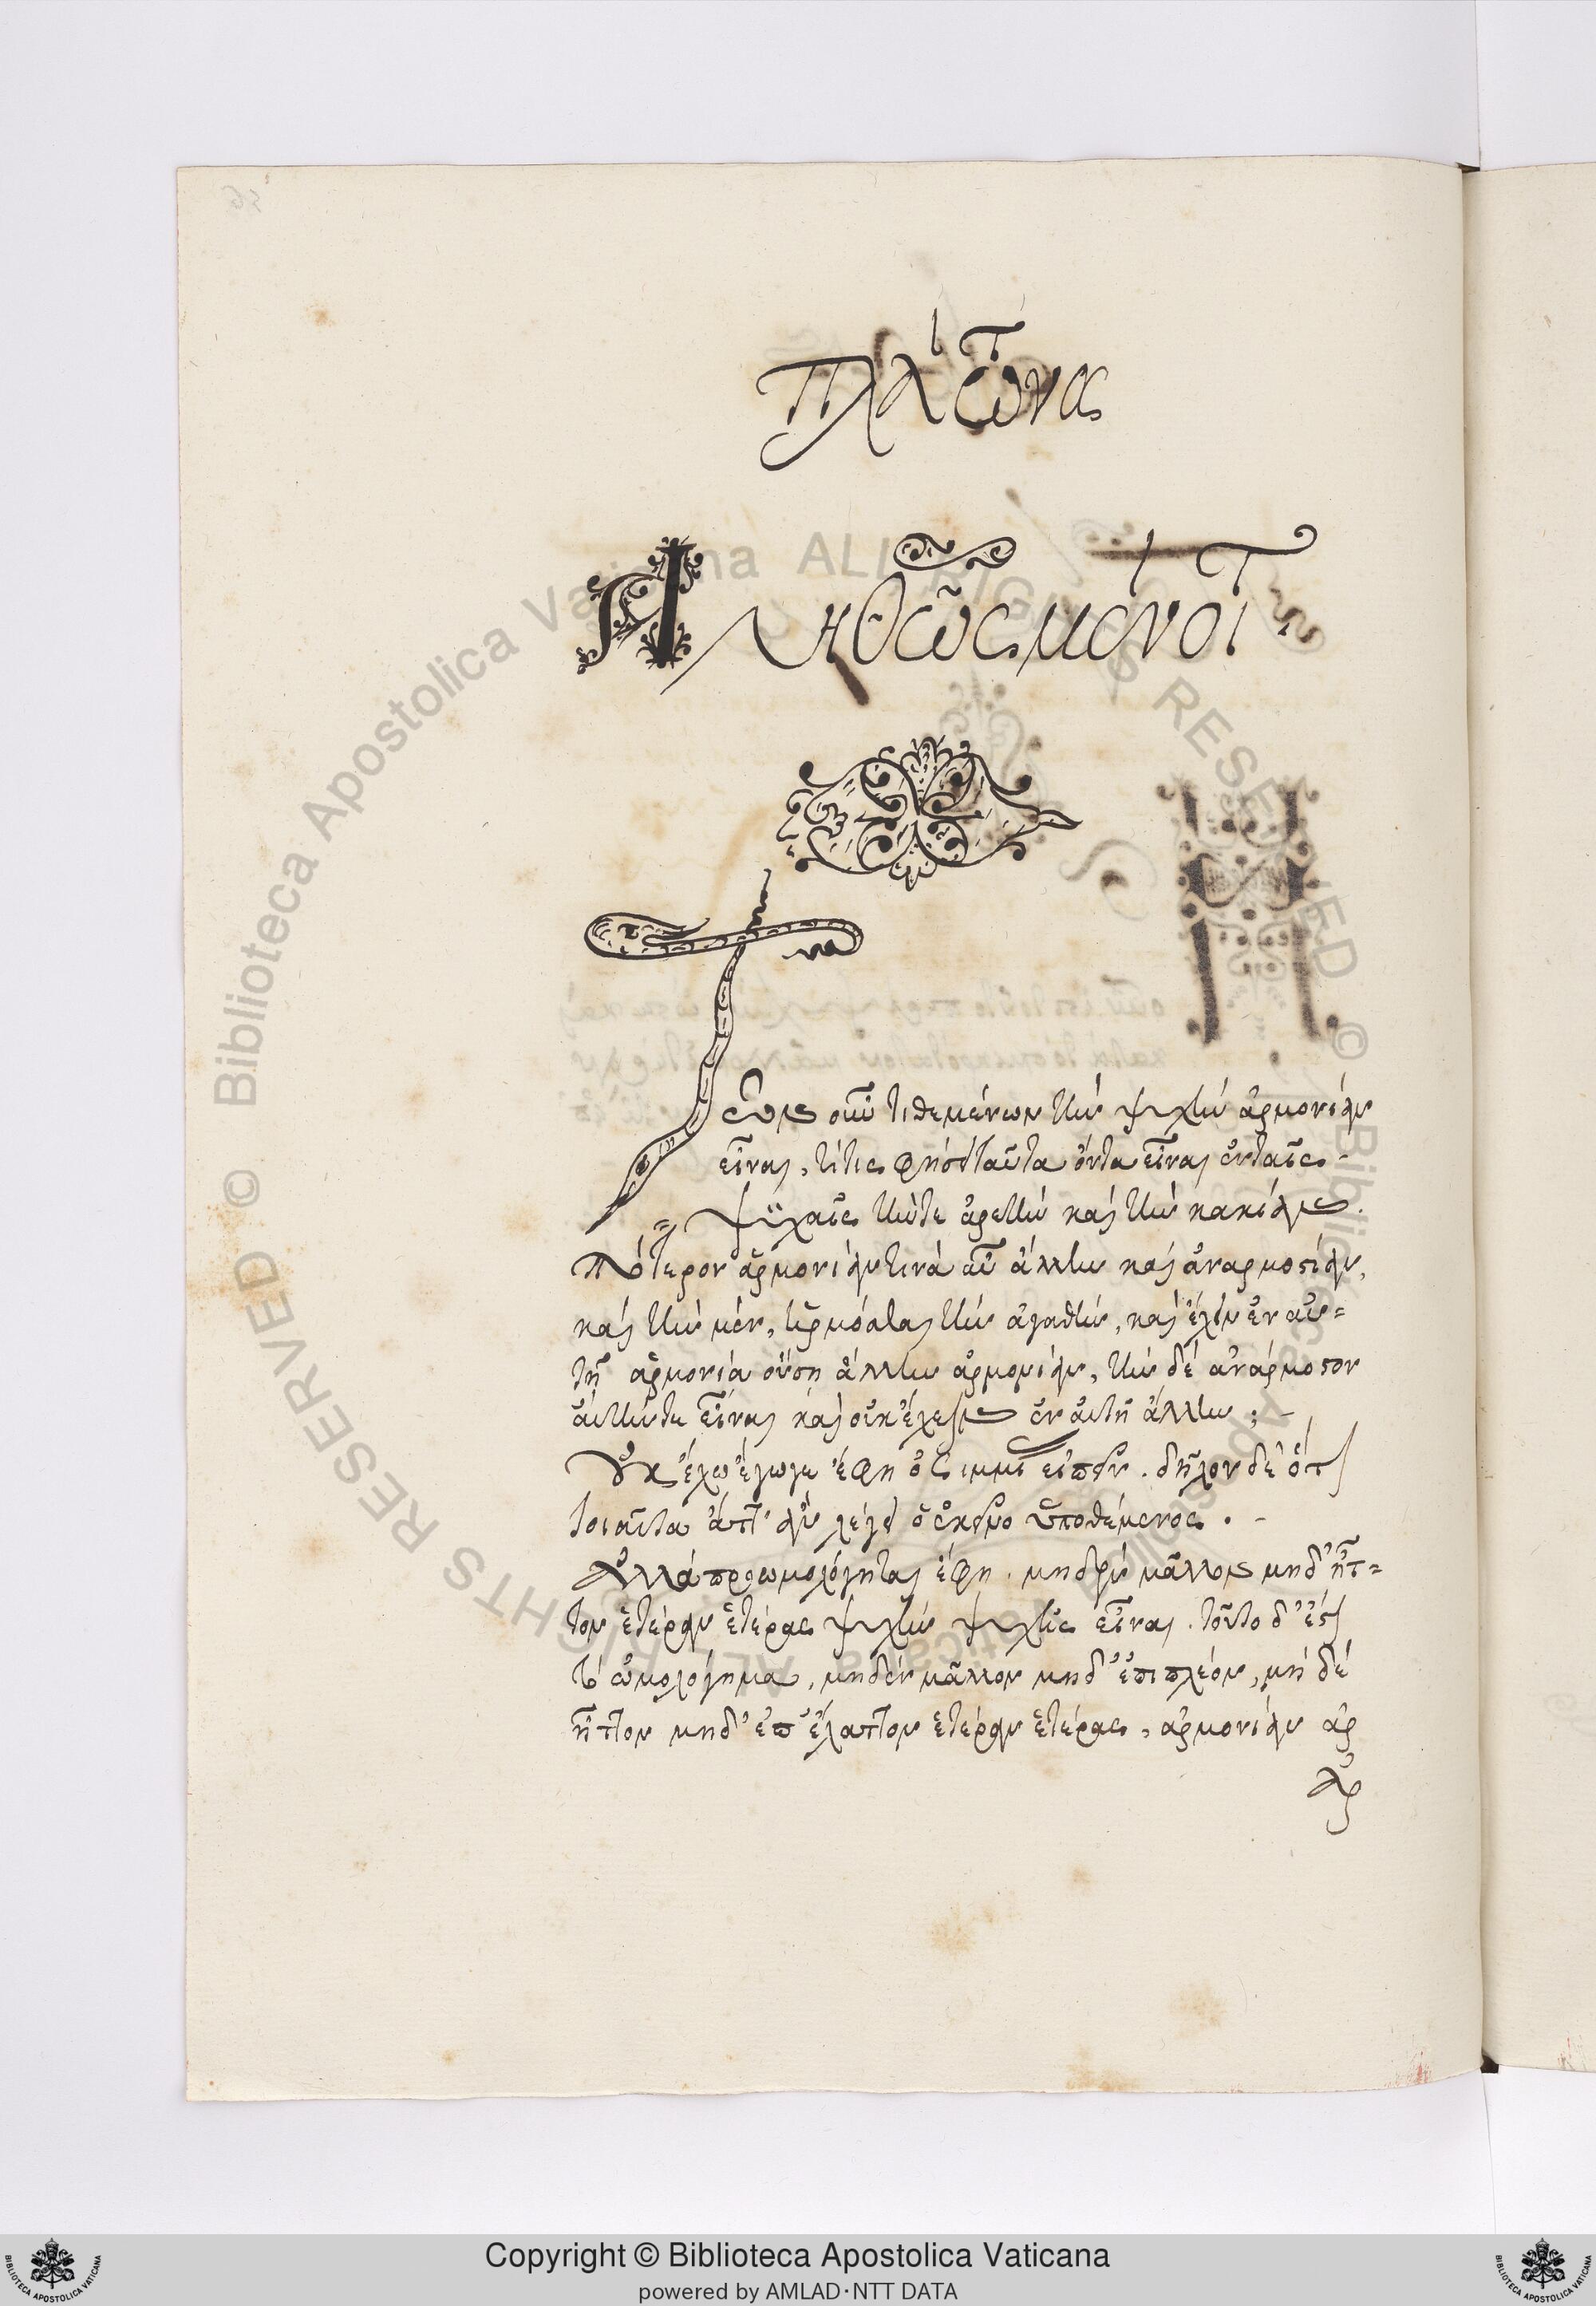 πλάτωνος
Ἀληθῶς μέντοι
Τῶν οὖν τιθεμένων τὴν ψυχὴν ἁρμονίαν
εἶναι, τί τις φήσει ταῦτα ὄντα εἶναι ἐν ταῖς
ψυχαῖς τήν τε ἀρετὴν καὶ τὴν κακίαν.
πότερον ἁρμονίαν τινὰ αὖ ἄλλην καὶ ἀναρμοστίαν,
καὶ τὴν μὲν, ἡρμόσθαι τὴν ἀγαθὴν, καὶ ἔχειν ἐν αὐ=
τῇ ἁρμονίᾳ οὔσῃ ἄλλην ἁρμονίαν, τὴν δὲ ἀνάρμοστον
αὐτήν τε εἶναι καὶ οὐκ ἔχειν ἐν αὑτῇ ἄλλην; -
Οὐκ ἔχω ἔγωγε ἔφη ὁ σιμμί εἰπεῖν. δῆλον δὲ ὅτι
τοιαῦτα ἄττ' ἂν λέγοι ὁ ἐκεῖνο ὑποθέμενος. -
Ἀλλὰ προωμολόγηται ἔφη. μηδὲν μᾶλλον μηδ' ἧτ=
τον ἑτέραν ἑτέρας ψυχὴν ψυχῆς εἶναι. τοῦτο δ' ἐστὶ
τὸ ὡμολόγημα, μηδὲν μᾶλλον μηδ' ἐπιπλέον, μὴ δὲ
ἧττον μηδ' ἐπ' ἔλαττον ἑτέραν ἑτέρας, ἁρμονίαν ἁρ
ἁρ
© Biblioteca Apostolica Vaticana ALL RIGHTS RESERVED
Copyright © Biblioteca Apostolica Vaticana
powered by AMLAD·NTT DATA
BIBLIOTECA APOSTOLICA VATICANA
BIBLIOTECA APOSTOLICA VATICANA